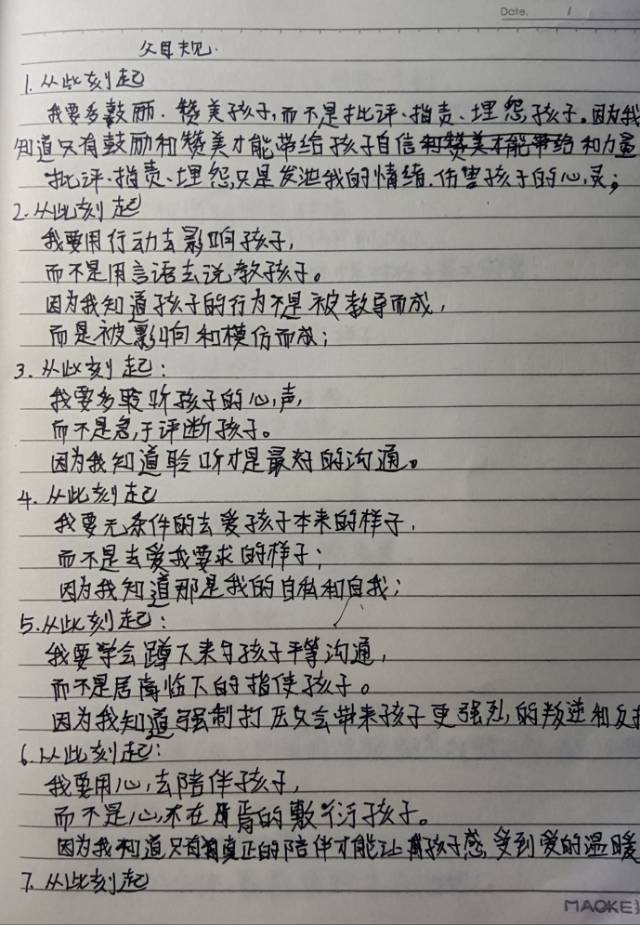 Date. /
父母规
1. 从此刻起
我要多鼓励、赞美孩子,而不是批评、指责、埋怨孩子。因为我
知道只有鼓励和赞美才能带给孩子自信和赞美不能带给和力量
批评、指责、埋怨,只是发泄我的情绪、伤害孩子的心灵;
2. 从此刻起
我要用行动去影响孩子,
而不是用言语去说教孩子。
因为我知道孩子的行为不是被教导而成,
而是被影响和模仿而成;
3. 从此刻起:
我要多聆听孩子的心声,
而不是急于评断孩子。
因为我知道聆听才是最好的沟通。
4. 从此刻起
我要无条件的去爱孩子本来的样子,
而不是去爱我要求的样子;
因为我知道那是我的自私和自我;
5. 从此刻起:
我要学会蹲下来与孩子平等沟通,
而不是居高临下的指使孩子。
因为我知道强制打压只会带来孩子更强烈的叛逆和反抗
6. 从此刻起:
我要用心去陪伴孩子,
而不是心不在焉的敷衍孩子。
因为我知道只有真正的陪伴才能让孩子感受到爱的温暖
7. 从此刻起
MAOKE